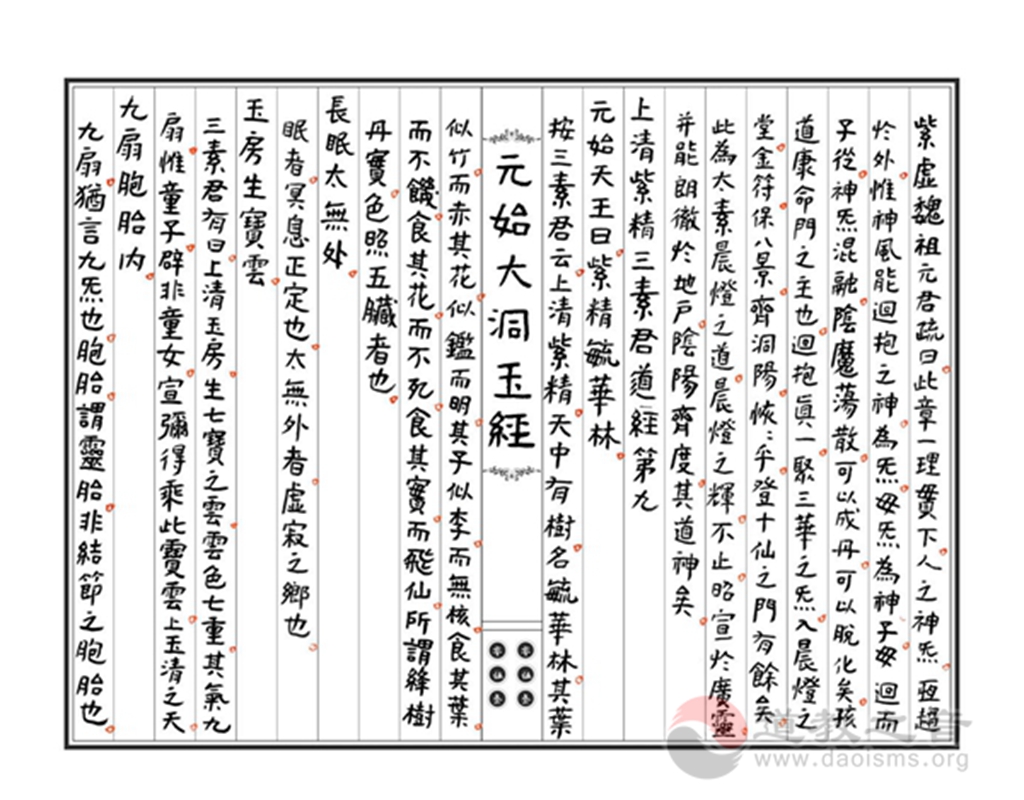 紫虛魏祖元君疏曰此章一理貫下人之神炁恆超
於外惟神風能迴抱之神為炁母炁為神子母迴而
子從神炁混融陰魔蕩散可以成丹可以脫化矣孩
道康命門之主也迴抱眞一聚三華之炁入晨燈之
堂金符保八景齊洞陽恢恢乎登十仙之門有餘矣
此為太素晨燈之道晨燈之輝不止昭宣於廣靈
并能朗徹於地戶陰陽齊度其道神矣
上清紫精三素君道經第九
元始天王曰紫精毓華林
按三素君云上清紫精天中有樹名毓華林其葉
元始大洞玉經
似竹而赤其花似鑑而明其子似李而無核食其葉
而不饑食其花而不死食其實而飛仙所謂絳樹
丹實色照五臟者也
長眠太無外
眠者冥息正定也太無外者虛寂之鄉也
玉房生寶雲
三素君有曰上清玉房生七寶之雲雲色七重其氣九
扇惟童子辟非童女宣彌得乘此寶雲上玉清之天
九扇胞胎内
九扇猶言九炁也胞胎謂靈胎非結節之胞胎也
道教之音
www.daoisms.org